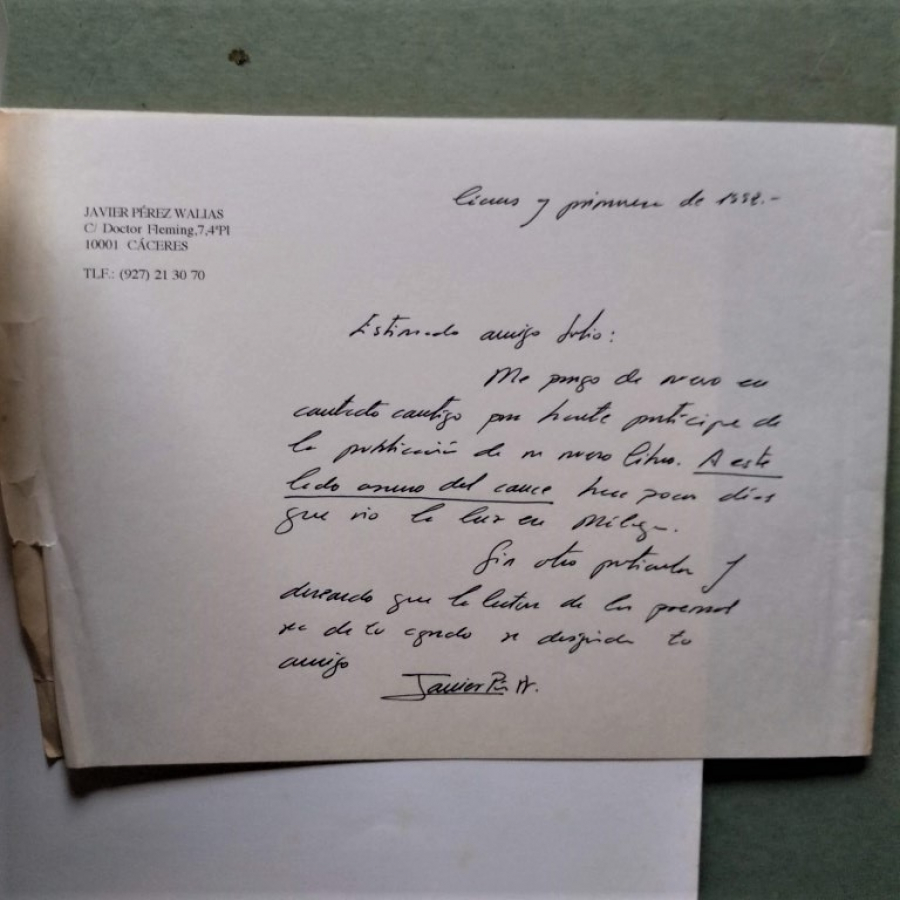 JAVIER PÉREZ WALIAS
C/ Doctor Fleming,7,4ºPl
10001 CÁCERES
TLF.: (927) 21 30 70
y primavera de
Estimado amigo Julio:
Me pongo de nuevo en
contacto contigo por hacerte partícipe de
la publicación de mi nuevo libro. A este
lado oscuro del cauce hace pocos días
que vio la luz en Málaga.
Sin otro particular y
deseando que la lectura de los poemas
sea de tu agrado se despide tu
amigo
Javier